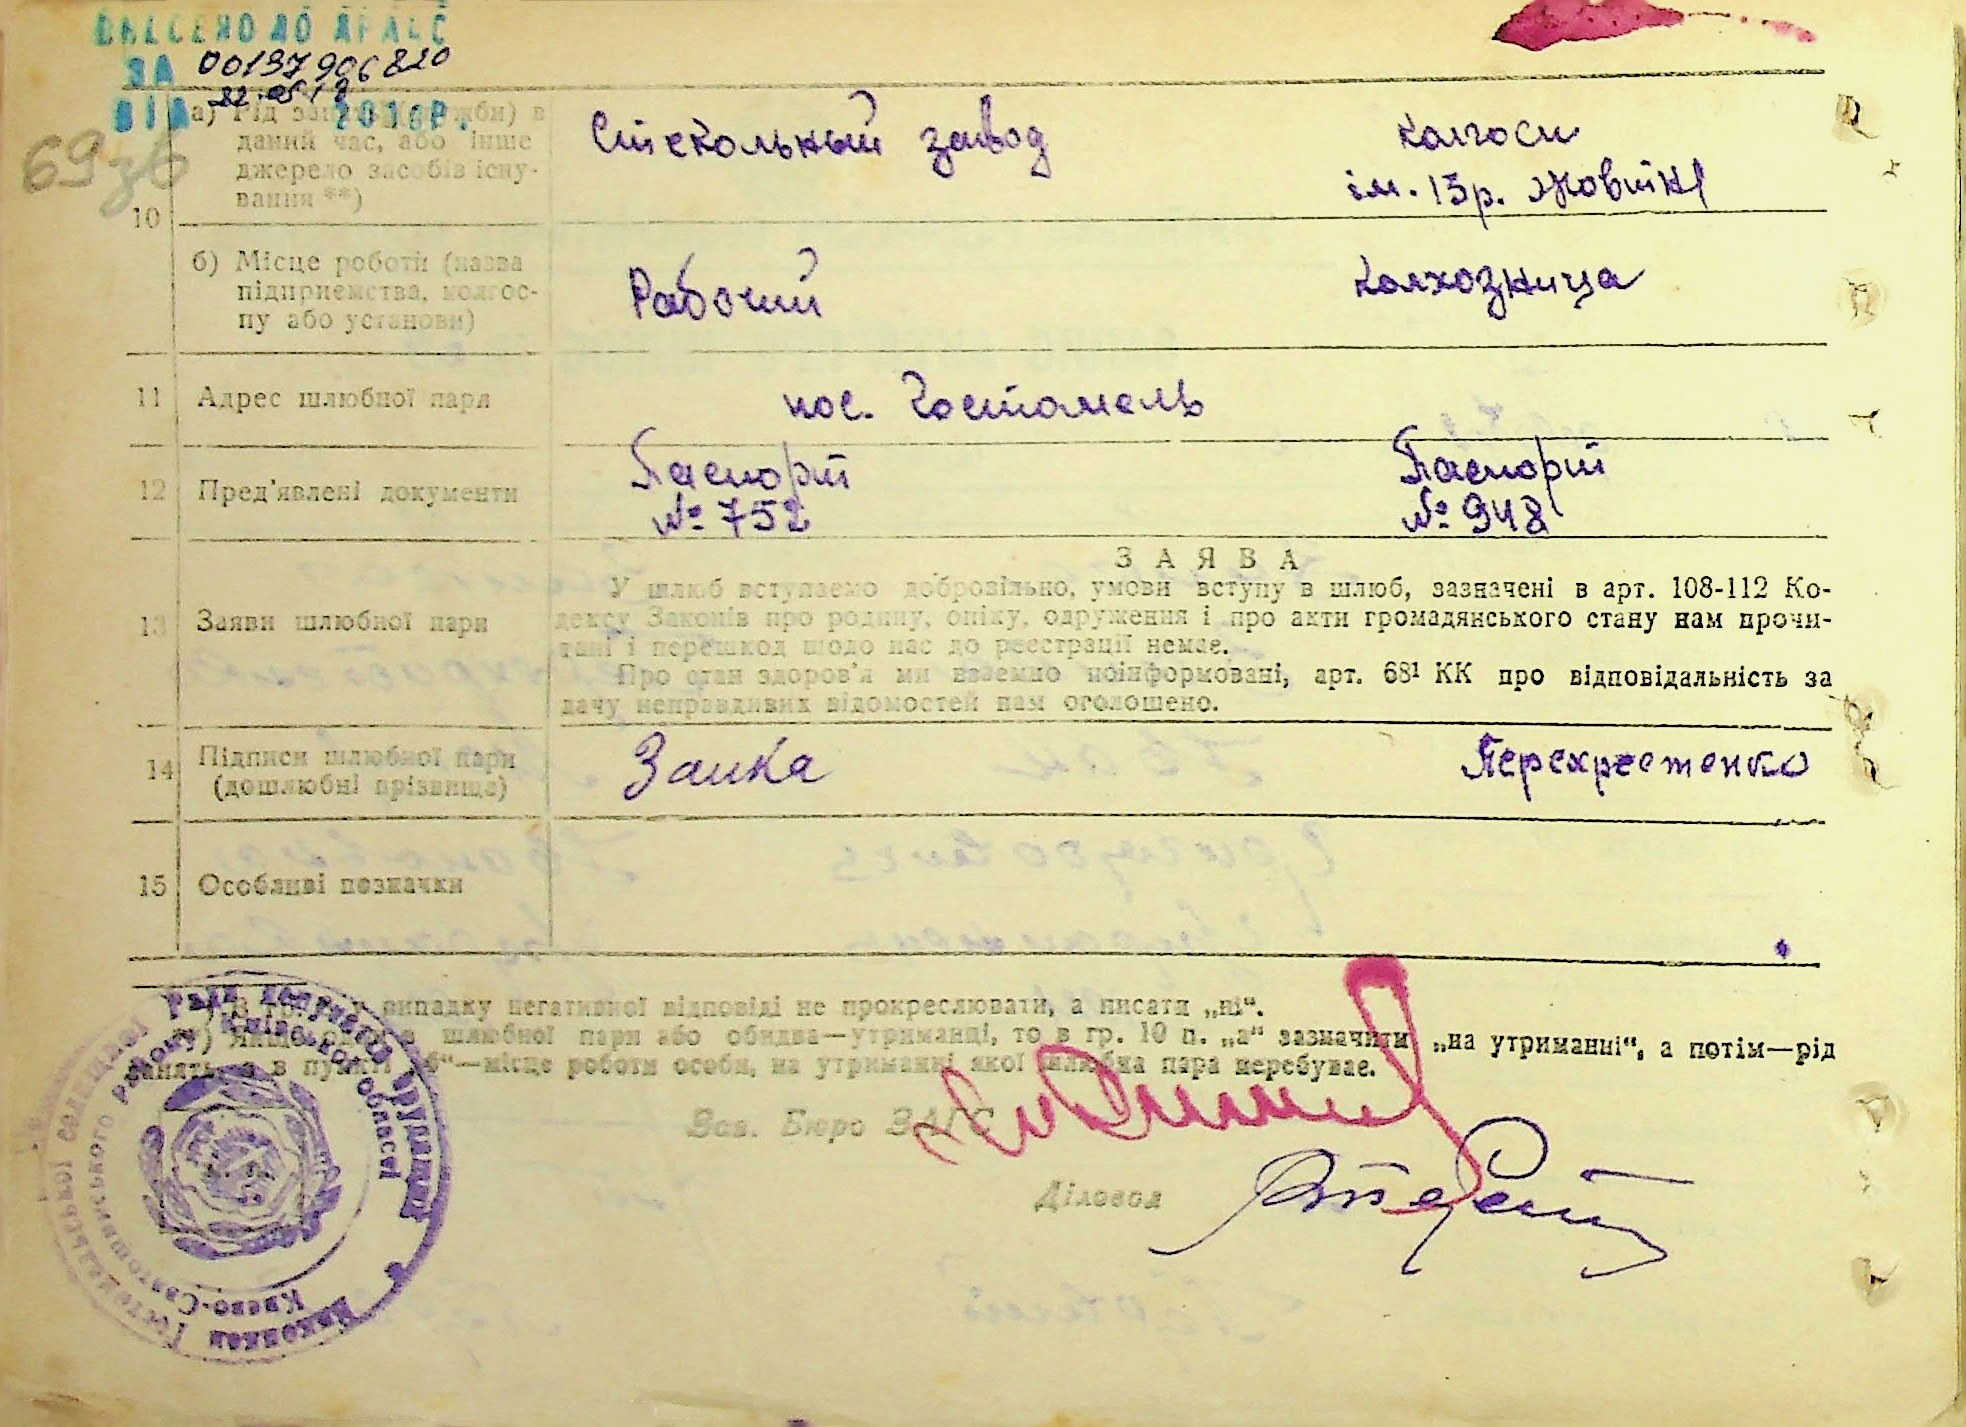 ВНЕСЕНО ДО ДРАЦС
ЗА 00137906820
ВІД 22.05.18 201 Р.
69зв
10
а) Рід занять (служби) в
даний час, або інше
джерело засобів існу-
вання **)
Стекольный завод
колгосп
ім. 15р. Жовтня
б) Місце роботи (назва
підприємства, колгос-
пу або установи)
Рабочий
колхозница
11 Адрес шлюбної пари
пос. Гостомель
12 Пред'явлені документи
Паспорт
№ 752
Паспорт
№ 948
13 Заяви шлюбної пари
ЗАЯВА
У шлюб вступаємо добровільно, умови вступу в шлюб, зазначені в арт. 108-112 Ко-
дексу Законів про родину, опіку, одруження і про акти громадянського стану нам прочи-
тані і перешкод щодо нас до реєстрації немає.
Про стан здоров'я ми взаємно поінформовані, арт. 68¹ КК про відповідальність за
дачу неправдивих відомостей нам оголошено.
14 Підписи шлюбної пари
(дошлюбні прізвища)
Заика
Перехрестенко
15 Особливі позначки
випадку негативної відповіді не прокреслювати, а писати „ні“.
шлюбної пари або обидва—утриманці, то в гр. 10 п. „а“ зазначити „на утриманні“, а потім—рід
занять, а в пункті „б“—місце роботи особи, на утриманні якої шлюбна пара перебуває.
Зав. Бюро ЗАГС
Діловод
Виконком Гостомельської селищної Ради депутатів трудящих
Києво-Святошинського району Київської області